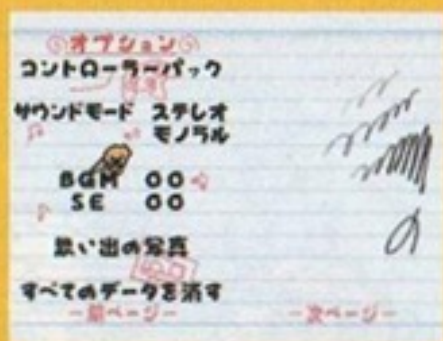 オプション
コントローラーパック
サウンドモード ステレオ
モノラル
BGM 00
SE 00
思い出の写真
すべてのデータを消す
－前ページ－ －次ページ－